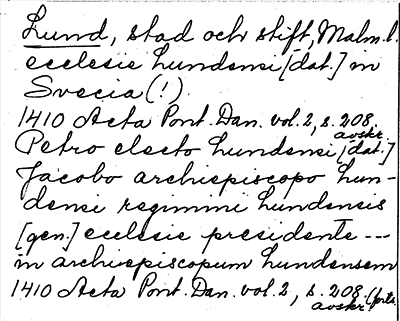 Lund, stad och stift, Malm.l.
ecclesie Lundensi [dat.] in
Svecia (!)
1410 Acta Pont. Dan. vol. 2, s. 208.
avskr.
Petro electo Lundensi [dat.]
Jacobo archiepiscopo Lun-
densi regimini Lundensis
[gen.] ecclesie presidente ---
in archiepiscopum Lundensem
1410 Acta Pont. Dan. vol. 2, s. 208. (forts.
avskr.